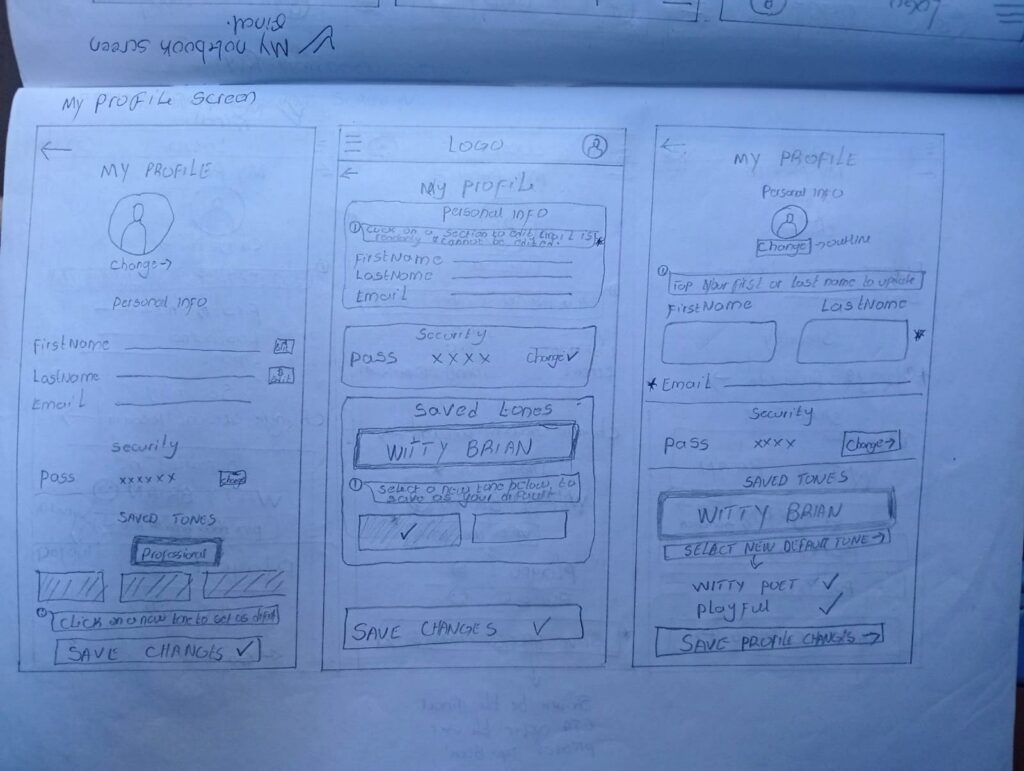 LOGO
My notebook screen
final.
My Profile Screen
MY PROFILE
Change→
Personal Info
FirstName
LastName
Email
Security
Pass xxxxxx Change
SAVED TONES
Professional
Click on a new tone to set as default
SAVE CHANGES ✓
LOGO
My Profile
Personal Info
Click on a section to edit, Email is
readonly & cannot be edited. *
FirstName
LastName
Email
Security
Pass XXXX Change✓
Saved tones
WITTY BRIAN
Select a new tone below, to
save as your default
✓
SAVE CHANGES ✓
MY PROFILE
Personal Info
Change →OUTLINE
Tap your first or last name to update
FirstName LastName
*
* Email
Security
Pass xxxx Change→
SAVED TONES
WITTY BRIAN
SELECT NEW DEFAULT TONE→
WITTY POET ✓
Playful ✓
SAVE PROFILE CHANGES→